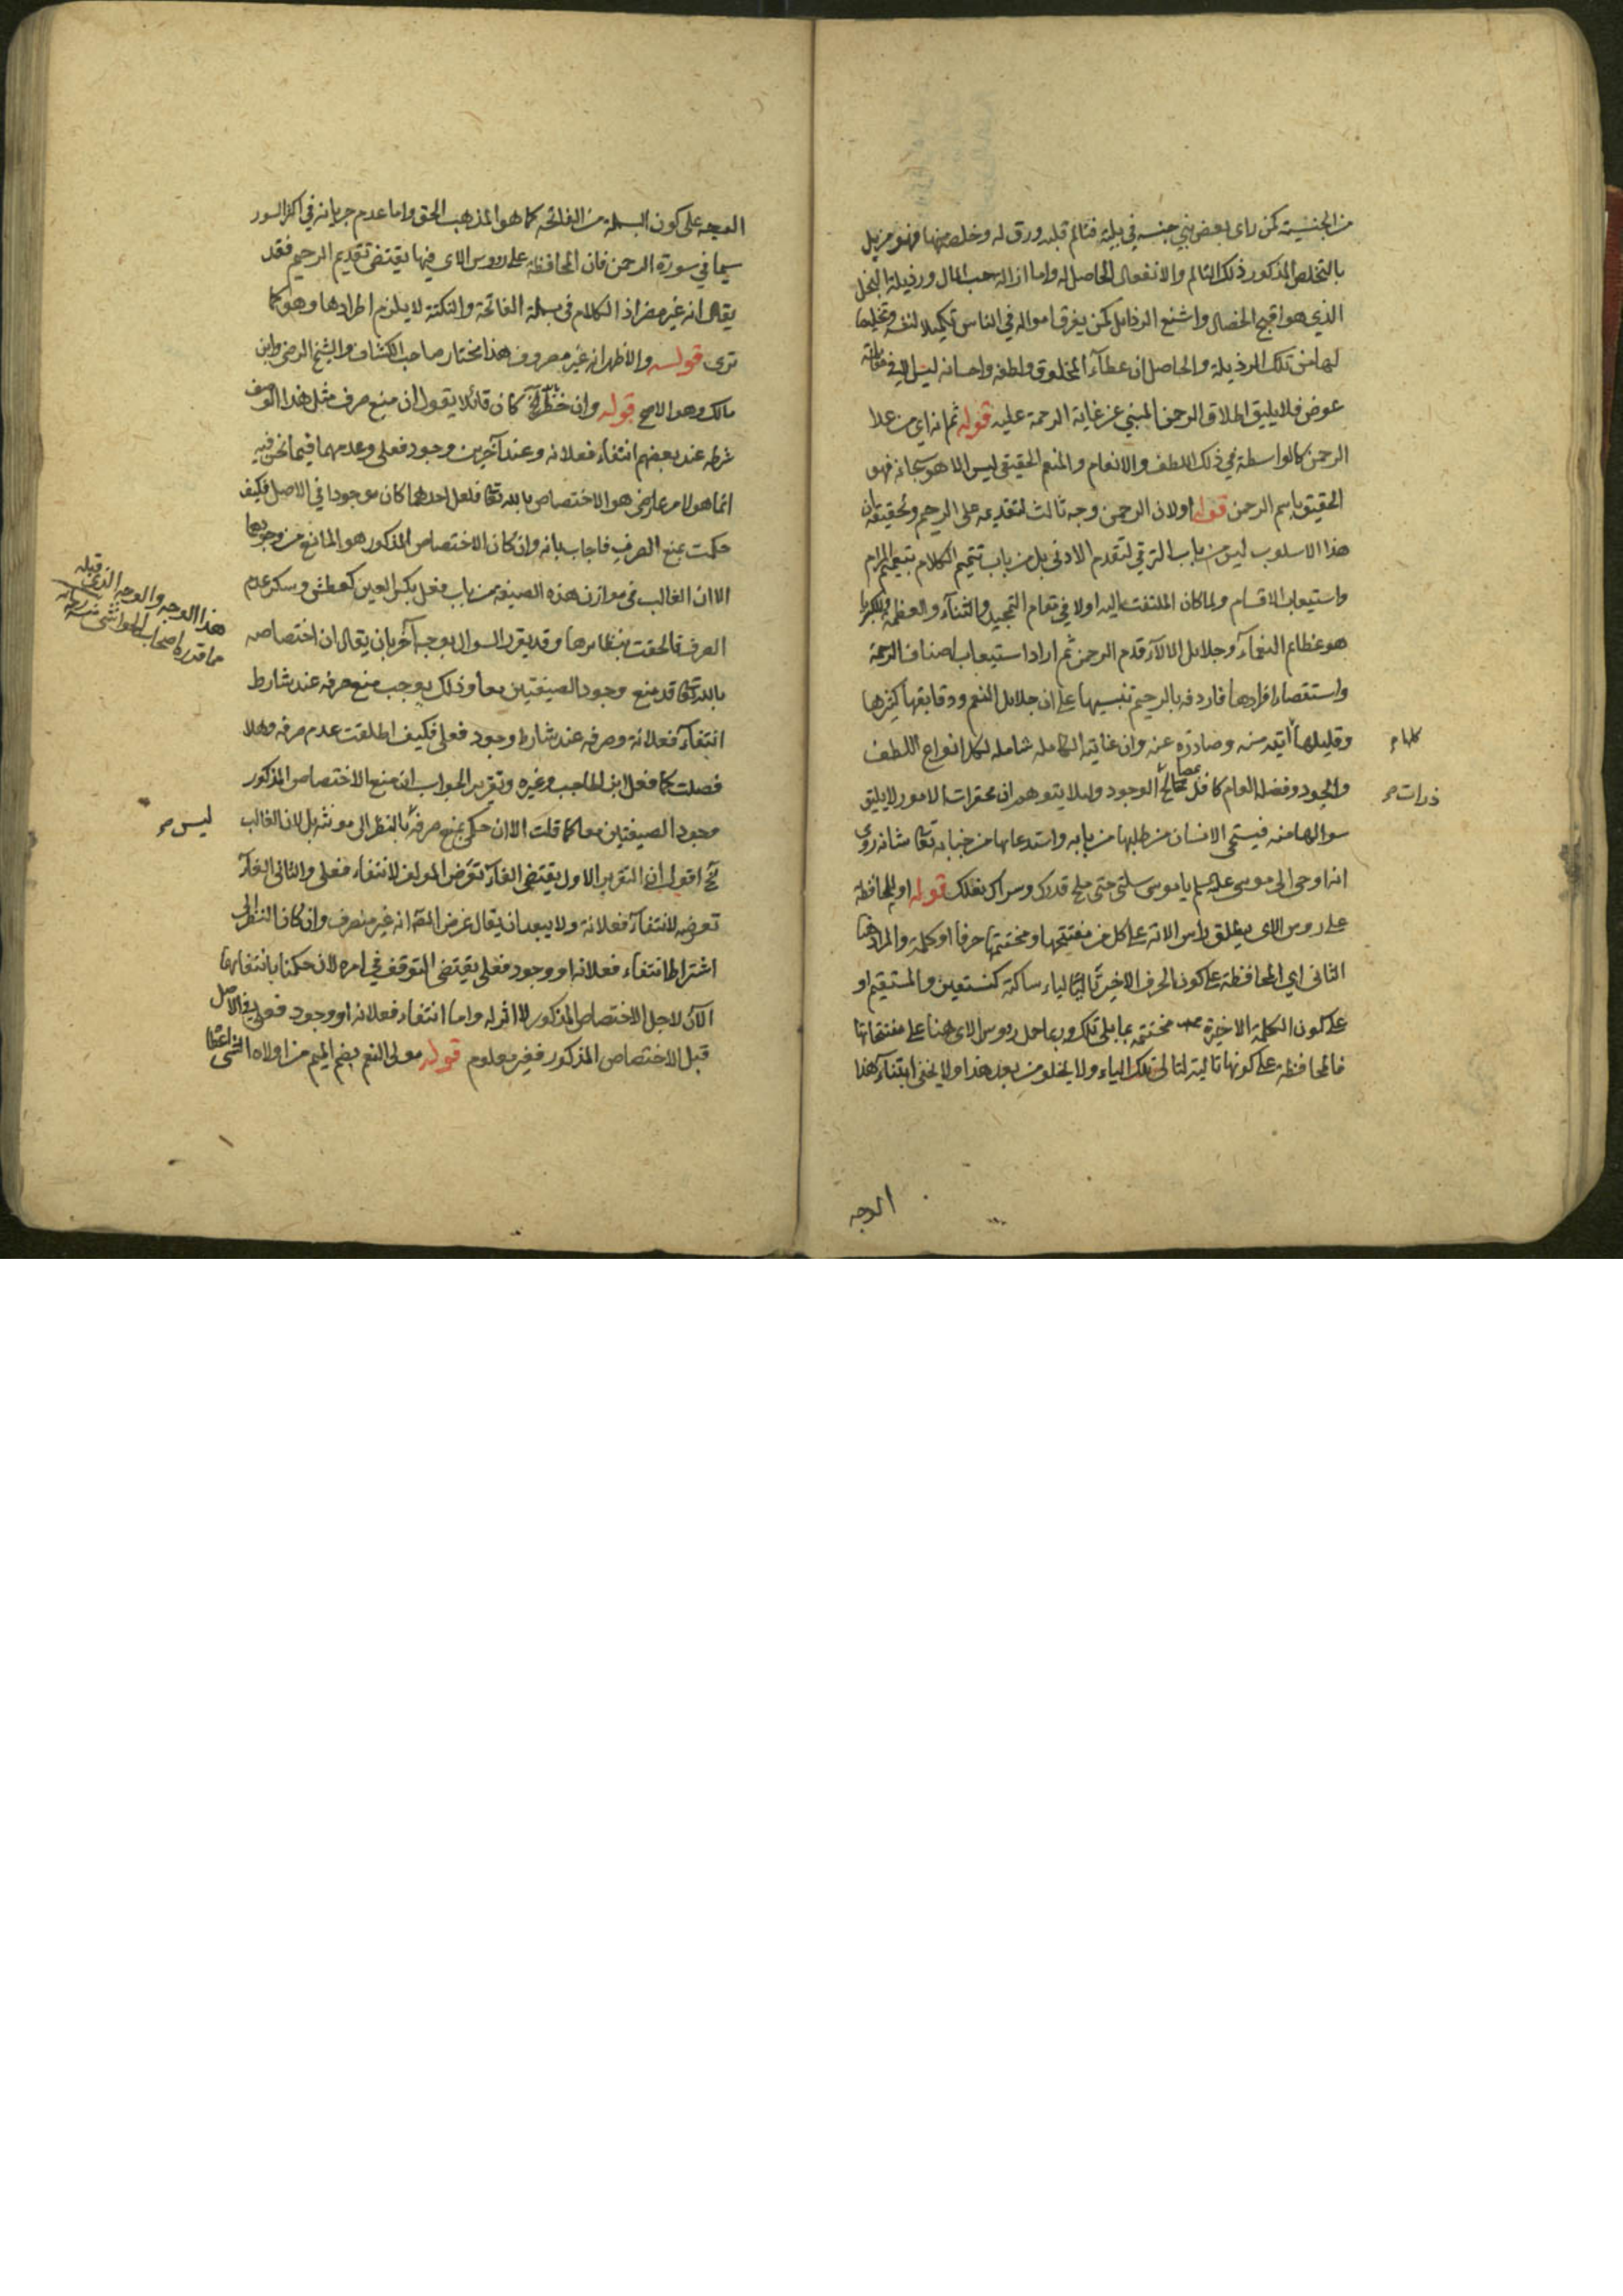 من الجنسية كمن رأى بعض بني جنسه في بلية فتألم قلبه ورق له وخلصه منها فهو مزيل
بالتخلص المذكور ذلك التألم والانفعال الحاصل له واما ازالة حب المال ورذيلة البخل
الذي هو اقبح الخصال واشنع الرذايل كمن يفرق امواله في الناس تكميلا لنفسه وتخليصا
لها من تلك الرذيلة والحاصل ان عطآء المخلوق ولطفه واحسانه ليس الا في مقابلة
عوض فلا يليق اطلاق الرحمن المنبي عن غاية الرحمة عليه قوله ثم انه اى من علا
الرحمن كالواسطة في ذلك اللطف والانعام والمنعم الحقيقي ليس الا هو سبحانه فهو
الحقيق باسم الرحمن قوله اولان الرحمن وجه ثالث لتقديمه على الرحيم وتحقيقه ان
هذا الاسلوب ليس من باب الترقي لتقدم الادنى بل من باب تتميم الكلام بتعميم المرام
واستيعاب الاقسام ولما كان الملتفت اليه اولا في مقام التمجيد والثنآء والعظمة والكبريا
هو عظائم النعمآء وجلائل الآلآء قدم الرحمن ثم اراد استيعاب اصناف الرحمة
واستقصاء افرادها فاردفه بالرحيم تنبيها على ان جلائل النعم ودقايقها كثيرها
وقليلها آتية منه وصادرة عنه وان عنايته الكاملة شاملة لكل انواع اللطف
كلها م
والجود وفضله العام كافل بمصالح الوجود ولئلا يتوهم ان محقرات الامور لا يليق
ذرات م
سوالها منه فيستحي الانسان من طلبها من بابه واستدعائها من جنابه تعالى شانه روى
انه اوحى الى موسى عليه السلام يا موسى سلني حتى ملح قدرك وشراك نعلك قوله او للمحافظة
على روس الاى يطلق راس الاية على كل من مفتتحها ومختتمها حرفا او كلمة والمراد هنا
الثاني اي المحافظة على كون الحرف الاخير تاليا لياء ساكنة كنستعين والمستقيم او
على كون الكلمة الاخيرة مختتمة بما يلي تلك وربما حمل روس الاى هنا على مفتتحاتها
فالمحافظة على كونها تالية لتالي تلك الياء ولا يخلو من بعد هذا ولا يخفى ابتنآء هذا
الوجه
الوجه على كون البسملة من الفاتحة كما هو المذهب الحق واما عدم جريانه في اكثر السور
سيما في سورة الرحمن فان المحافظة على روس الاى فيها يقتضي تقديم الرحيم فقد
يقال انه غير مضر اذ الكلام في بسملة الفاتحة والنكتة لا يلزم اطرادها وهو كما
ترى قوله والاظهر انه غير مصروف هذا مختار صاحب الكشاف والشيخ الرضي وابن
مالك وهو الاصح قوله وان حظر كان قائلا يقول ان منع صرف مثل هذا الوصف
شرطه عند بعضهم انتفاء فعلانه وعند آخرين وجود فعلى وعدمهما فيما نحن فيه
انما هو لامر عارض هو الاختصاص بالله تعالى فلعل احدهما كان موجودا في الاصل فكيف
حكمت بمنع الصرف فاجاب بانه وان كان الاختصاص المذكور هو المانع من وجودهما
الا ان الغالب في موازن هذه الصيغة من باب فعل بكسر العين كعطش وسكر عدم
الصرف فالحقت بنظائرها وقد يقرر السوال بوجه آخر بان يقال ان اختصاصه
هذا الوجه والوجه الذي قبله
مما قدره اصحاب الحواشي منه رحمه الله
بالله تعالى قد منع وجود الصيغتين معا وذلك يوجب منع صرفه عند شارط
انتفآء فعلانة وصرفه عند شارط وجود فعلى فكيف اطلقت عدم صرفه وهلا
فصلت كما فعل ابن الحاجب وغيره وتقرير الجواب ان منع الاختصاص المذكور
وجود الصيغتين معا كما قلت الا ان حكمي بمنع صرفه بالنظر الى مونثه بل لان الغالب
ليس م
الخ اقول ان التقرير الاول يقتضي الغآء تعرض المولف لانتفاء فعلى والثاني الغآء
تعرضه لانتفآء فعلانة ولا يبعد ان يقال غرض المص انه غير منصرف وان كان النظر الى
اشتراط انتفاء فعلانه او وجود فعلى يقتضي التوقف في امره لان حكمنا بانتفائهما
الآن لاجل الاختصاص المذكور لا اثر له واما انتفاء فعلانه او وجود فعلى في الاصل
قبل الاختصاص المذكور فغير معلوم قوله مولى النعم بضم الميم من اولاه الشئ اعطا